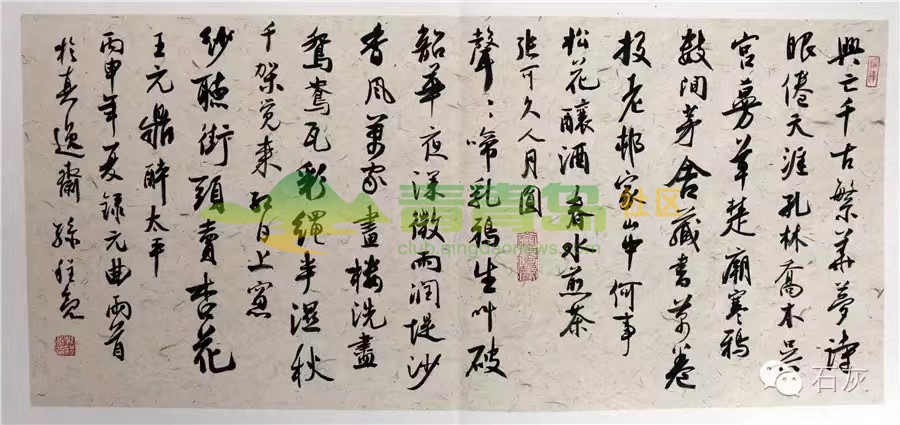 興亡千古繁華夢詩
眼倦天涯孔林喬木吳
宮蔓草楚廟寒鴉
數間茅舍藏書萬卷
投老邨家山中何事
松花釀酒春水煎茶
張可久人月圓
聲〻啼乳鴉生叫破
韶華夜深微雨潤堤沙
香風萬家畫樓洗盡
鴛鴦瓦彩繩半濕秋
千架覺來紅日上窗
紗聽街頭賣杏花
王元鼎醉太平
丙申年夏錄元曲兩首
於逸齋孫
青青岛社区
club.qingdaonews.com
石灰